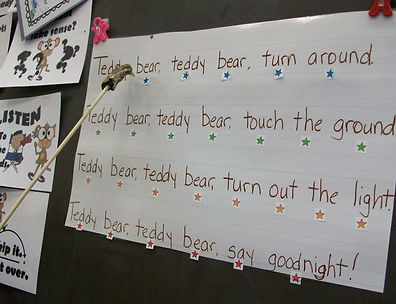 make sense?
Teddy bear, teddy bear, turn around.
Teddy bear, teddy bear, touch the ground
LISTEN
To
Teddy bear, teddy bear, turn out the light!
Teddy bear, teddy bear, say goodnight!
it..
over.